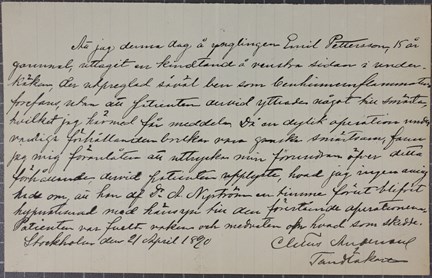 Då jag denna dag å ynglingen Emil Pettersson, 15 år
gammal, uttagit en kindtand å venstra sidan i under-
käken, der utpreglad såväl ben som benhinneinflammation
förefans, utan att patienten dervid yttrade något till smärta,
hvilket jag härmed får meddela. Då en dylik operation under
vanliga förhållanden brukar vara ganska smärtsam, fann
jag mig föranlåten att uttrycka min förundran öfver detta
förhållande dervid patienten upplyste, hvad jag ingen aning
hade om, att han af Dr A. Nyström en timme förut blifvit
hypnotiserad med hänsyn till den förestående operationen.
Patienten var fullt vaken och medveten om hvad som skedde.
Stockholm den 21 April 1890
Claes
Tandläkare